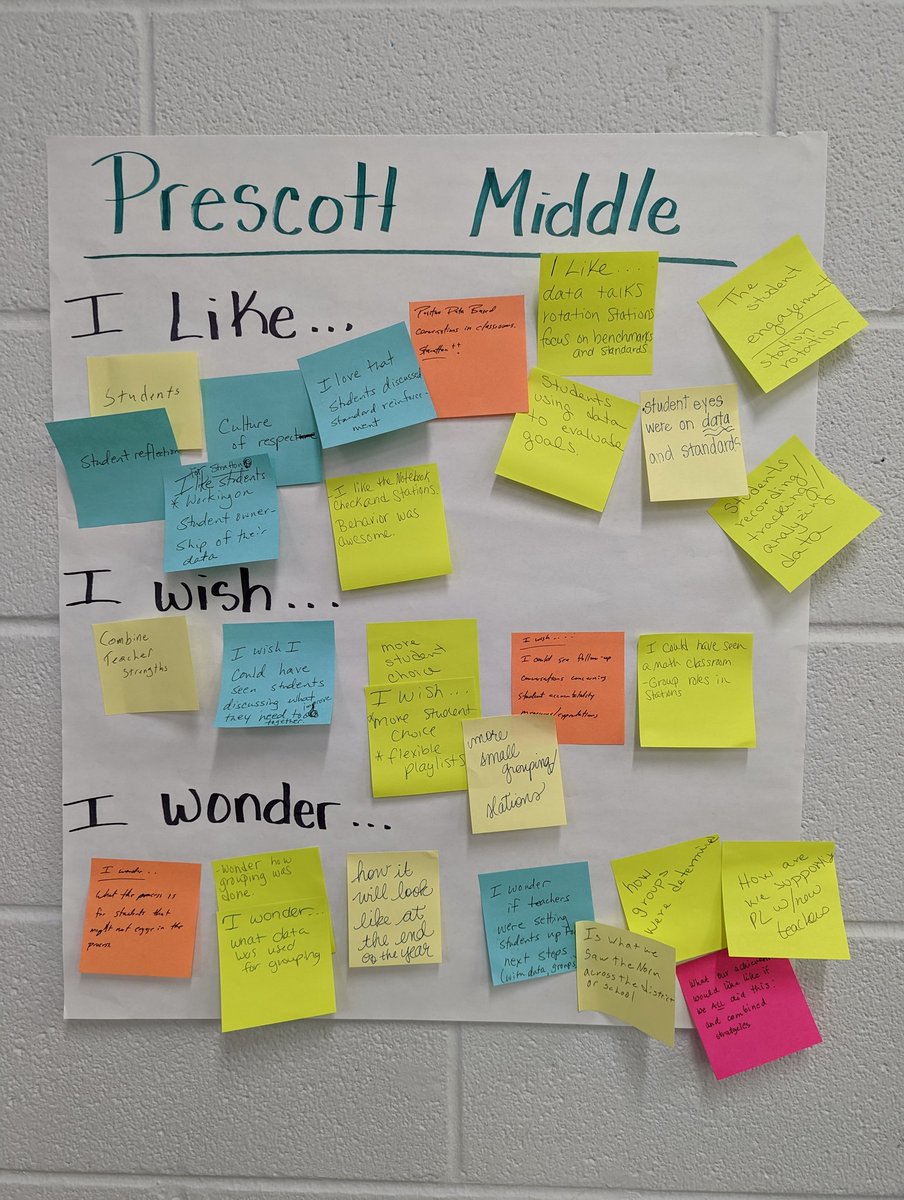 Prescott Middle
I Like...
Students
Student reflection
Culture
of respect
for Stratton
I like students
* Working on
student owner-
ship of their
data
I love that
students discussed
standard reinforce-
ment
Positive Data Based
conversations in classrooms.
Stratton!!
I like the Notebook
Check and Stations.
Behavior was
awesome.
I Like....
data talks
rotation stations
focus on benchmarks
and standards
Students
using data
to evaluate
goals.
student eyes
were on data
and standards
The
student
engagement
station
rotation
Students
recording/
tracking/
analyzing
data
I wish...
Combine
Teacher
Strengths
I wish I
could have
seen students
discussing what
they need to improve
together.
more
student
choice
I wish....
* more student
choice
* flexible
playlists
more
small
grouping/
stations
I wish....
I could see follow-up
conversations concerning
student accountability
measures/expectations
I could have seen
a math classroom
- Group roles in
stations
I wonder...
I wonder...
What the process is
for students that
might not engage in the
process
-Wonder how
grouping was
done.
I wonder...
what data
was used
for grouping
how it
will look
like at
the end
of the year
I wonder
if teachers
were setting
students up for
next steps
(with data, groups)
Is what we
saw the Norm
across the district
or school
how
groups
were determine
How are
we supporting
PL w/new
teachers
What our achievement
would like like if
we ALL did this!
and combined
strategies